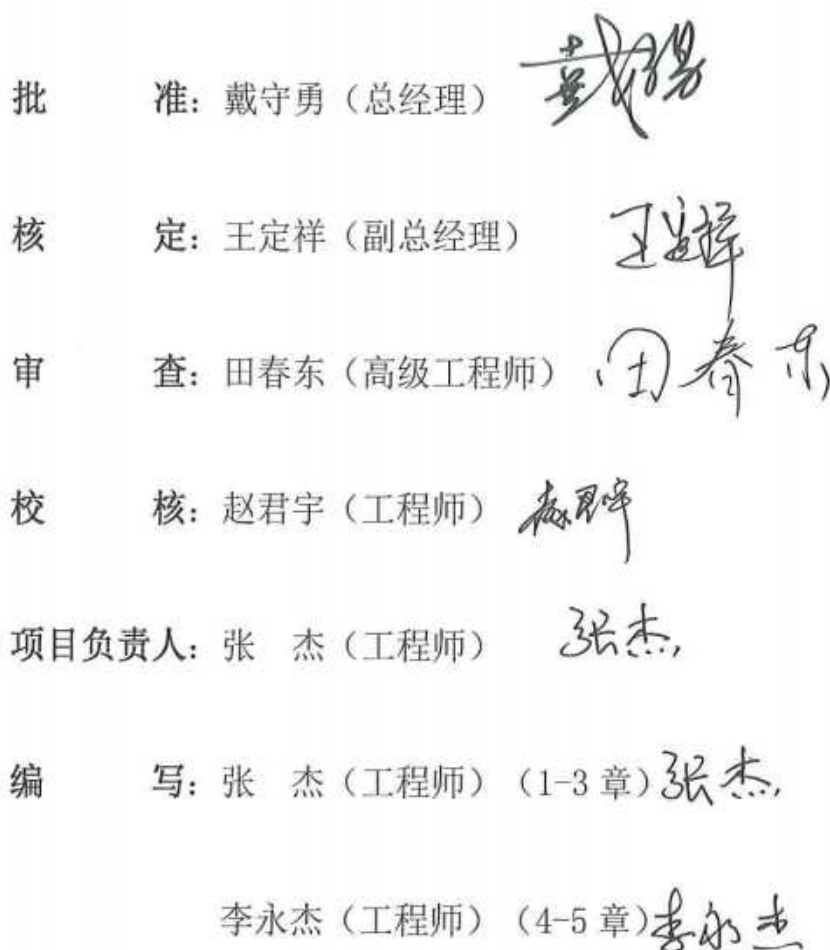 批 准：戴守勇（总经理）
核 定：王定祥（副总经理） 王定祥
审 查：田春东（高级工程师） 田春东
校 核：赵君宇（工程师） 赵君宇
项目负责人：张 杰（工程师） 张杰
编 写：张 杰（工程师）（1-3 章） 张杰
李永杰（工程师）（4-5 章） 李永杰